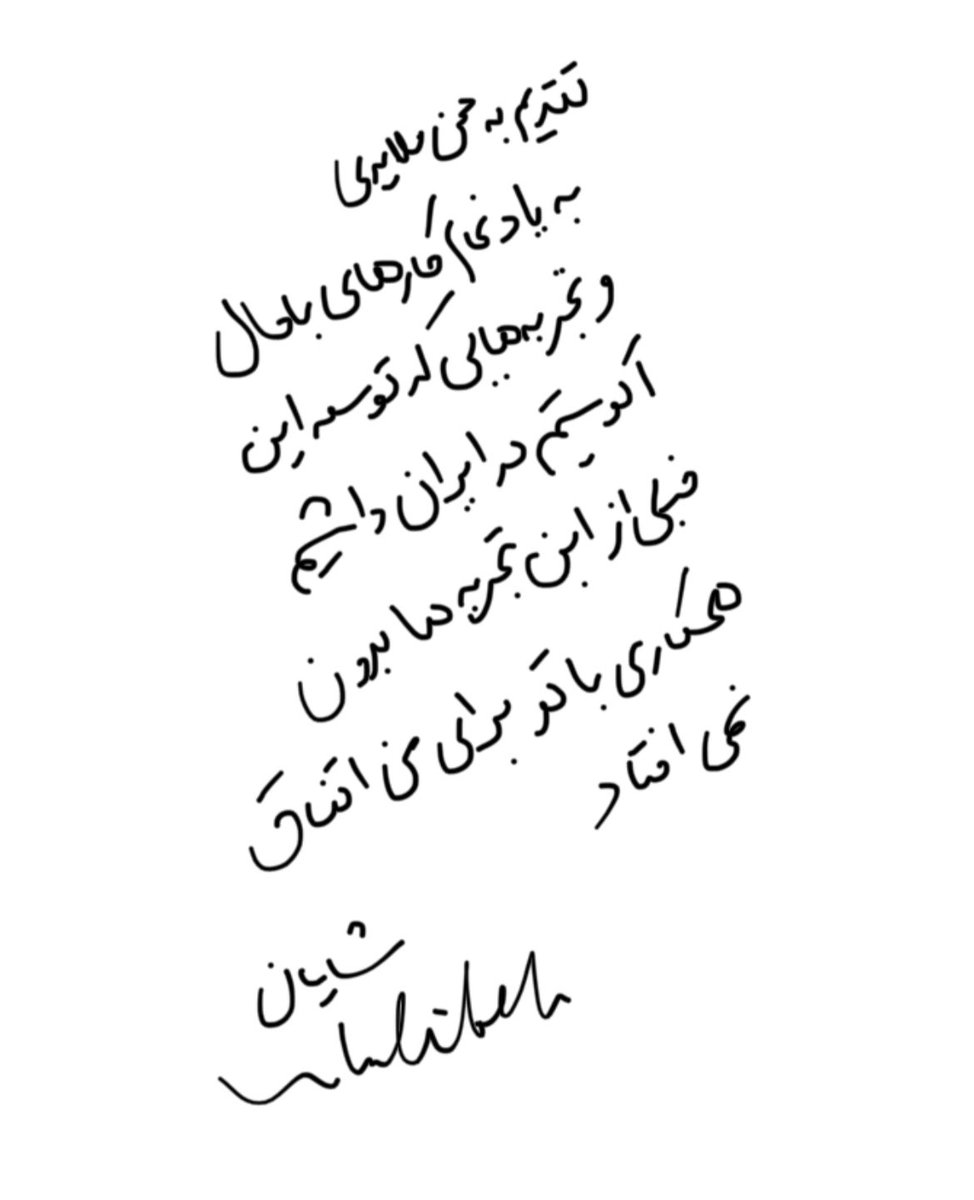 تقدیم به حمی ملایری
به یاد تمام کارهای باحال
و تجربه‌هایی که توسعه این
اکوسیستم در ایران داشتیم
خیلی از این تجربه ها بدون
همکاری با تو برای من اتفاق
نمی افتاد
شایان